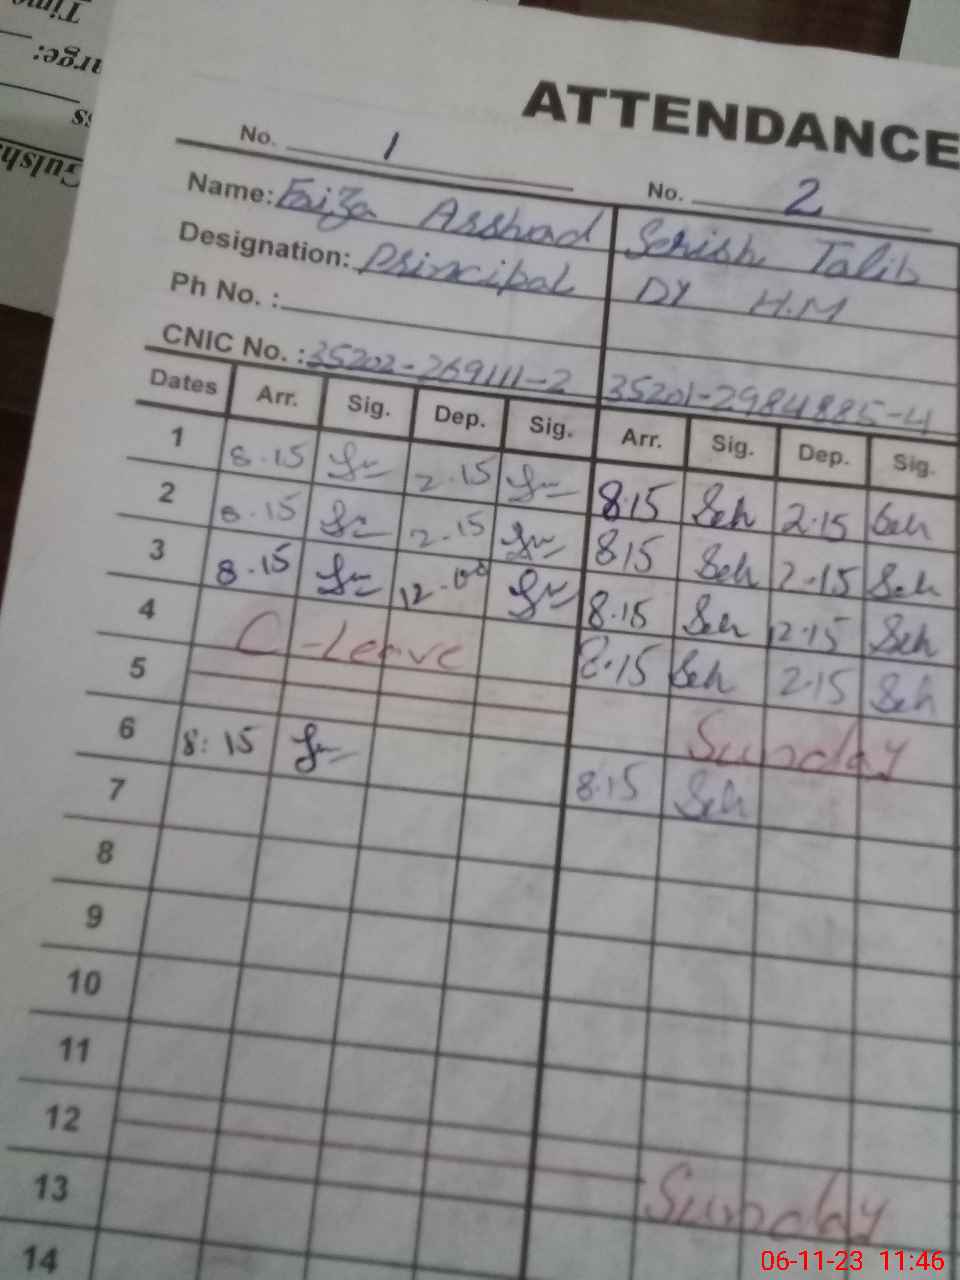 Time
arge:
ss
Gulsh
ATTENDANCE
No. 1 No. 2
Name: Faiza Arshad Sehrish Talib
Designation: Principal DY H.M
Ph No. :
CNIC No. : 35202-269111-2 35201-2984885-4
Dates Arr. Sig. Dep. Sig. Arr. Sig. Dep. Sig.
1 8.15 2.15 8.15 Seh 2.15 Seh
2 8.15 2.15 8.15 Seh 2.15 Seh
3 8.15 12.00 8.15 Seh 2.15 Seh
4 C-Leave 8.15 Seh 2.15 Seh
5 Sunday
6 8:15 8.15 Seh
7
8
9
10
11
12 Sunday
13
14
06-11-23 11:46